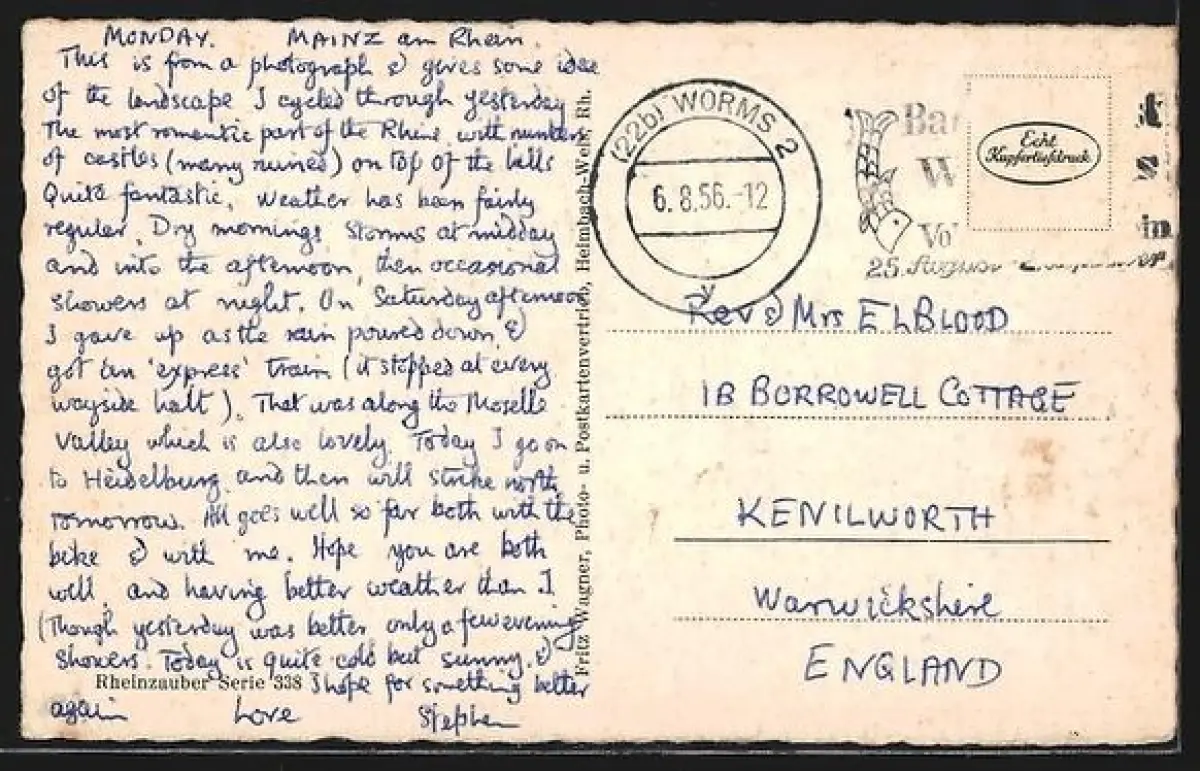 MONDAY. MAINZ am Rhein.
This is from a photograph & gives some idea
of the landscape I cycled through yesterday
The most romantic part of the Rhine with numbers
of castles (many ruined) on top of the hills
Quite fantastic. Weather has been fairly
regular. Dry mornings storms at midday
and into the afternoon, then occasional
showers at night. On Saturday afternoon
I gave up as the rain poured down &
got an 'express' train (it stopped at every
wayside halt). That was along the Moselle
Valley which is also lovely. Today I go on
to Heidelburg and then will strike north
tomorrow. All goes well so far both with the
bike & with me. Hope you are both
well, and having better weather than I
(Though yesterday was better only a few evening
showers. Today is quite cold but sunny. &
I hope for something better
again Love Stephen
Rheinzauber Serie 338
Fritz Wagner, Photo- u. Postkartenvertrieb, Heimbach-Weis, Rh.
(22b) WORMS 2
6.8.56.-12
y
Echt
Kupfertiefdruck
25. August
Rev & Mrs E L BLOOD
1B BORROWELL COTTAGE
KENILWORTH
Warwickshire
ENGLAND